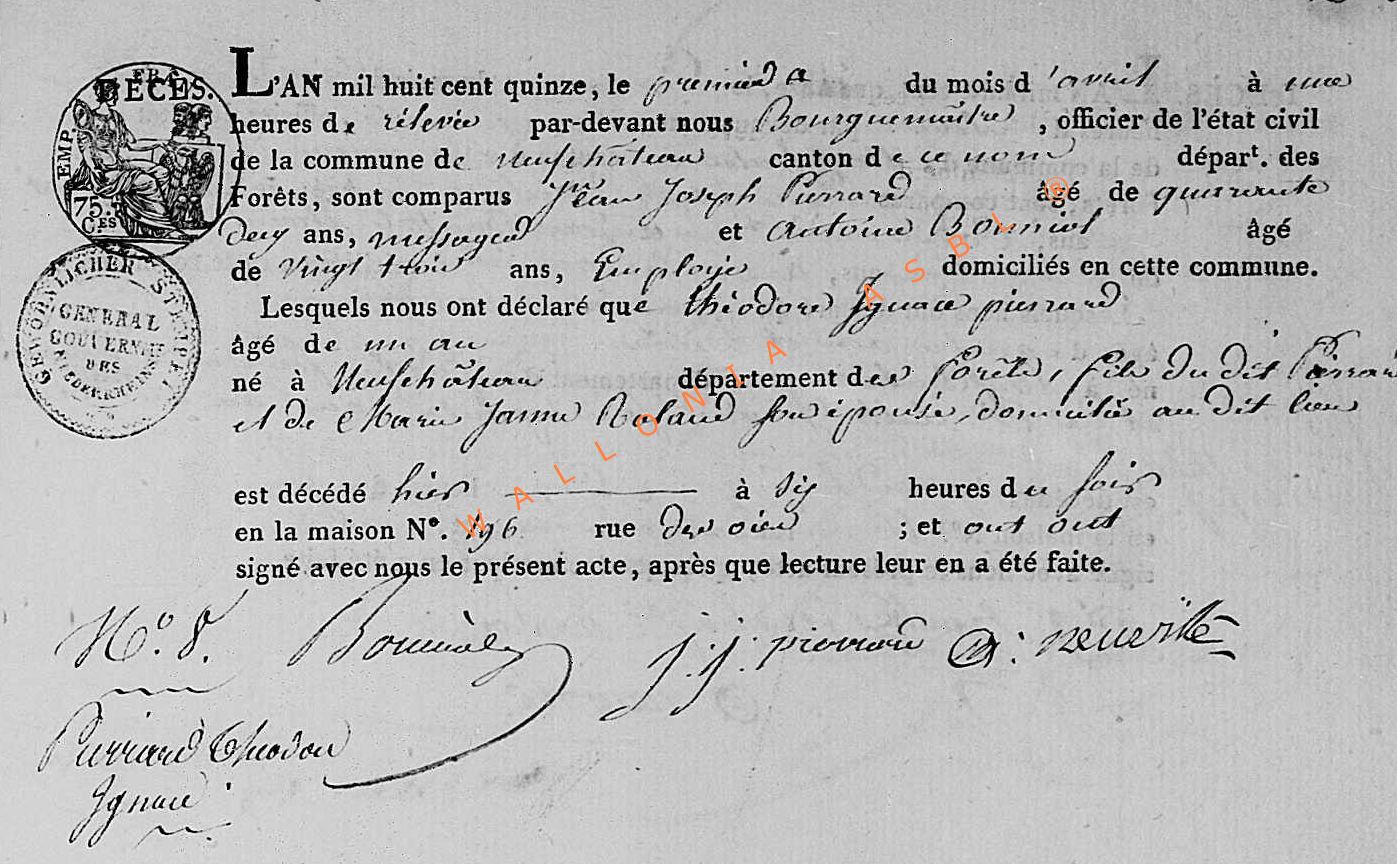 DÉCÈS.
EMP. FRA.
75.
C.ES
GEWÖHNLICHER STEMPEL
GENERAL
GOUVERNEM
DES
NIEDERRHEINS
L'AN mil huit cent quinze, le premier du mois d'avril à une
heures de relevée par-devant nous Bourguemaître, officier de l'état civil
de la commune de Neufchâteau canton de ce nom départ. des
Forêts, sont comparus Jean Joseph Pierrard âgé de quarante
deux ans, messager et Antoine âgé
de vingt trois ans, Employé domiciliés en cette commune.
Lesquels nous ont déclaré que théodore Ignace pierrard
âgé de un an
né à Neufchâteau département des Forêts, fils du dit Pierrard
et de Marie Jeanne Roland son épouse, domiciliés au dit lieu
est décédé hier à six heures du soir
en la maison N°. 196 rue ; et ont
signé avec nous le présent acte, après que lecture leur en a été faite.
N°. 8.
J. J. pierrard
Pierrard Theodore
Ignace
WALLONIA ASBL ®